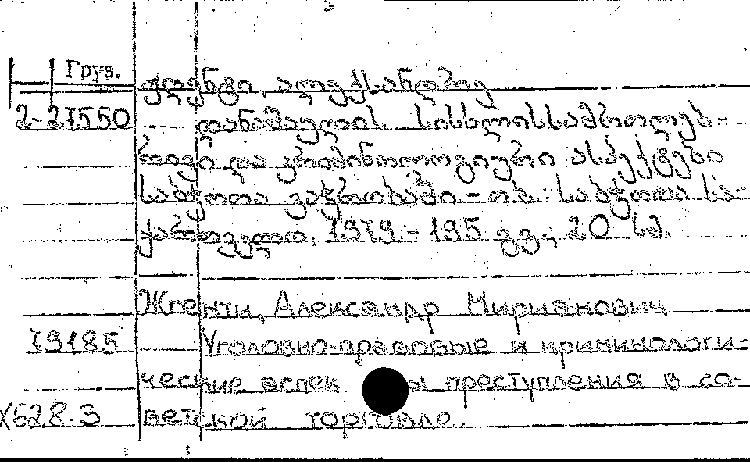 Груз.
ჟღენტი, ალექსანდრე
2-27550 დანაშაულის სისხლისსამართლებ-
რივი და კრიმინოლოგიური ასპექტები
საბჭოთა ვაჭრობაში. - თბ.: საბჭოთა სა-
ქართველო, 1979. - 195 გვ.; 20 სმ.
Жгенти, Александр Мирианович
79185 Уголовно-правовые и криминологи-
ческие аспекты преступления в со-
X628.3 ветской торговле.